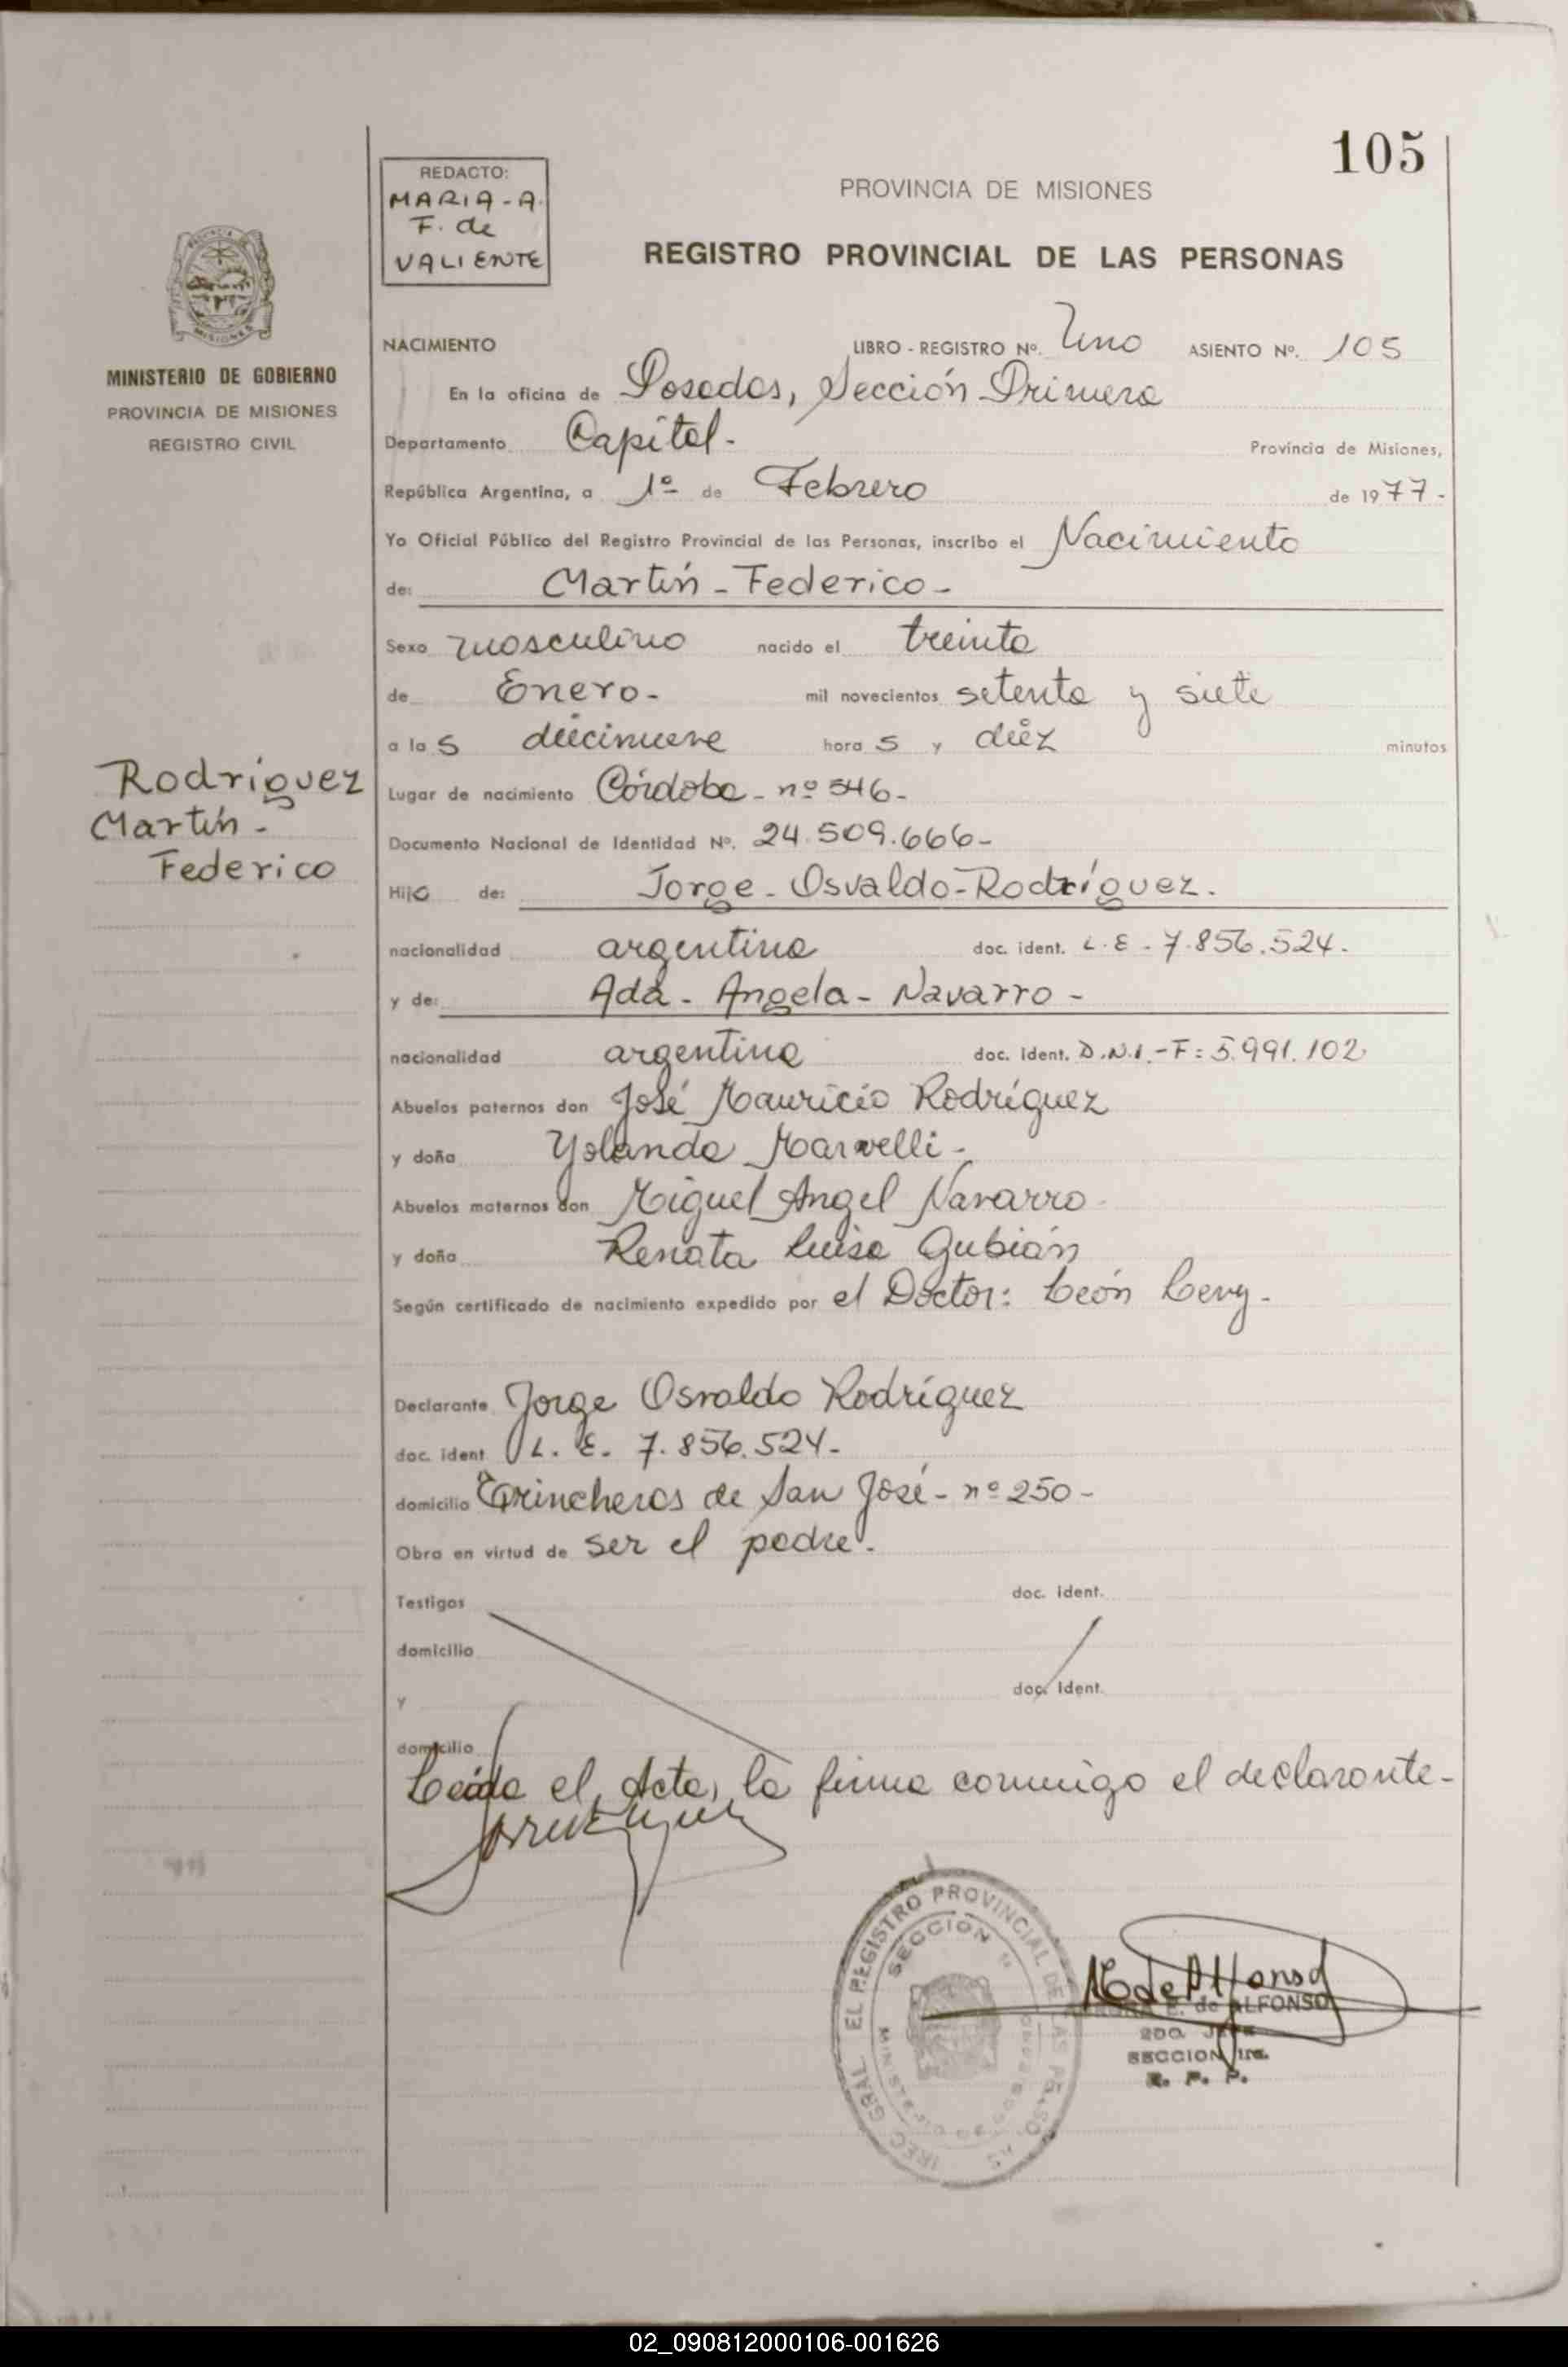 105
REDACTO:
MARIA-A.
F. de
VALIENTE
PROVINCIA DE MISIONES
REGISTRO PROVINCIAL DE LAS PERSONAS
MINISTERIO DE GOBIERNO
PROVINCIA DE MISIONES
REGISTRO CIVIL
NACIMIENTO LIBRO - REGISTRO Nº. Uno ASIENTO Nº. 105
En la oficina de Posadas, Sección Primera
Departamento Capital.-
Provincia de Misiones,
República Argentina, a 1º de Febrero de 1977.-
Yo Oficial Público del Registro Provincial de las Personas, inscribo el Nacimiento
de: Martín - Federico -
Sexo masculino nacido el treinta
de Enero.- mil novecientos setenta y siete
a las diecinueve horas y diez minutos
Rodríguez
Martín -
Federico
Lugar de nacimiento Córdoba - nº 546 -
Documento Nacional de Identidad Nº. 24.509.666 -
Hijo de: Jorge - Osvaldo - Rodríguez.
nacionalidad argentina doc. ident. L.E - 7.856.524.
y de: Ada - Angela - Navarro -
nacionalidad argentina doc. ident. D.N.I.-F: 5.991.102
Abuelos paternos don José Mauricio Rodríguez
y doña Yolanda -
Abuelos maternos don Miguel Angel Navarro
y doña Renata Luisa Gubián
Según certificado de nacimiento expedido por el Doctor: León Levy.-
Declarante Jorge Osvaldo Rodríguez
doc. ident L. E. 7.856.524-
domicilio Trincheras de San José - nº 250 -
Obra en virtud de ser el padre.
Testigos doc. ident.
domicilio
y doc. ident.
domicilio
Leída el Acta, la firma conmigo el declarante-
REGISTRO PROVINCIAL DE LAS PERSONAS
SECCION 1ª
E. de ALFONSO
2DO. JEFE
SECCION 1ra.
R. P. P.
02_090812000106-001626